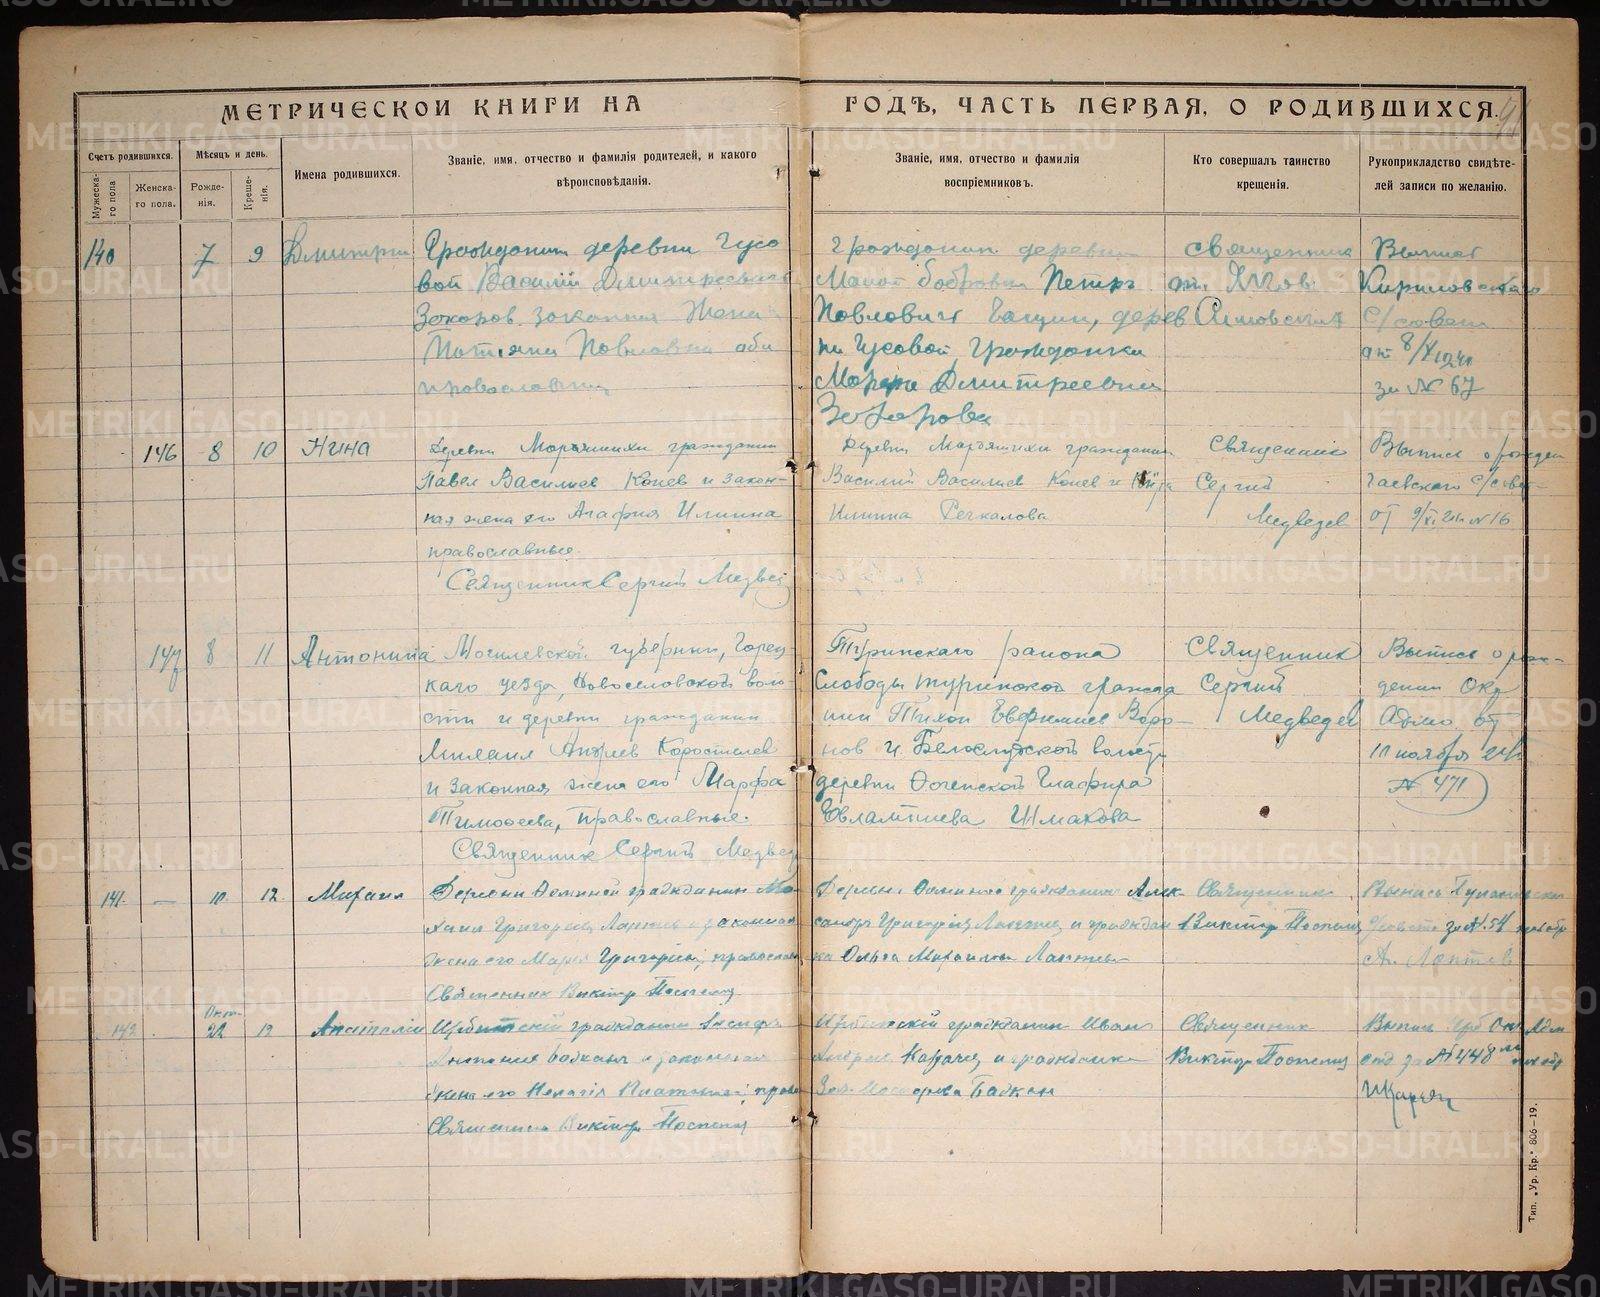 МЕТРИЧЕСКОЙ КНИГИ НА ГОДЪ, ЧАСТЬ ПЕРВАЯ, О РОДИВШИХСЯ.
Счетъ родившихся.
Мужеска-го пола
Женска-го пола.
Мѣсяцъ и день.
Рожде-нія.
Креще-нія.
Имена родившихся.
Званіе, имя, отчество и фамилія родителей, и какого
вѣроисповѣданія.
Званіе, имя, отчество и фамилія
воспріемниковъ.
Кто совершалъ таинство
крещенія.
Рукоприкладство свидѣте-
лей записи по желанію.
140 7 9 Дмитрий
Гражданин деревни Чусо
вой Василий Дмитриевич
Захаров законная жена
Татьяна Павловна оба
православныи
Гражданин деревни
Малой Бобровки Петр
Павлович Ващин, дерев
ни Чусовой, Гражданка
Марья Дмитреевна
Захарова
священник
Выпись
Кириловского
С/совета
от 8/XI 1924
за № 67
146 8 10 Нина
Деревни Мордяшихи гражданин
Павел Василиев Конев и закон-
ная жена его Агафия Илиина
православные.
Священник Сергий Медвед
Деревни Мордяшихи гражданин
Василий Василиев Конев и
Илиина Речкалова
Священник
Сергий
Медведев
Выпись о рожден
гаевского с/совет
от 9/XI 24 г. № 16
147 8 11 Антонина
Могилевской губернии, Горец-
каго уезда, Новоселовской воло-
сти и деревни гражданин
Михаил Андреев Коростелев
и законная жена его Марфа
Тимофеева, православные.
Священник Сергий Медвед
Туринскаго района
Слободы Туринской гражда
нин Тихон Евфимиев Воро-
нов и Белослудской волости
деревни Глафира
Евлампиева Шмакова
Священник
Сергий
Медведев
Выпись о рож-
дении Окр
Адмо от
10 ноября 24
№ 471
141. — 10 12. Михаил
Деревни гражданин Ми-
хаил Григориев Лаптев и законная
жена его Мария Григориева, православ
Священник Виктор Поспелов
Деревни гражданин Алек
сандр Григориев Лаптев и граждан
ка Ольга Михайлова Лаптева
Священник
Виктор Поспелов
Выпись
с/совета за № 54 ноября
Ал. Лаптев
142. Окт. 22 12 Анатолий
Ирбитский гражданин Иосиф
Антониев Бадкан и законная
жена его Пелагия Платонова; право
Священник Виктор Поспелов
Ирбитский гражданин Иван
Андреев и гражданка
Бадкан
Священник
Виктор Поспелов
Выпись Ирб Окр Адм
отд за № 448
Тип. „Ур. Кр.“ 806—19.
METRIKI.GASO-URAL.RU